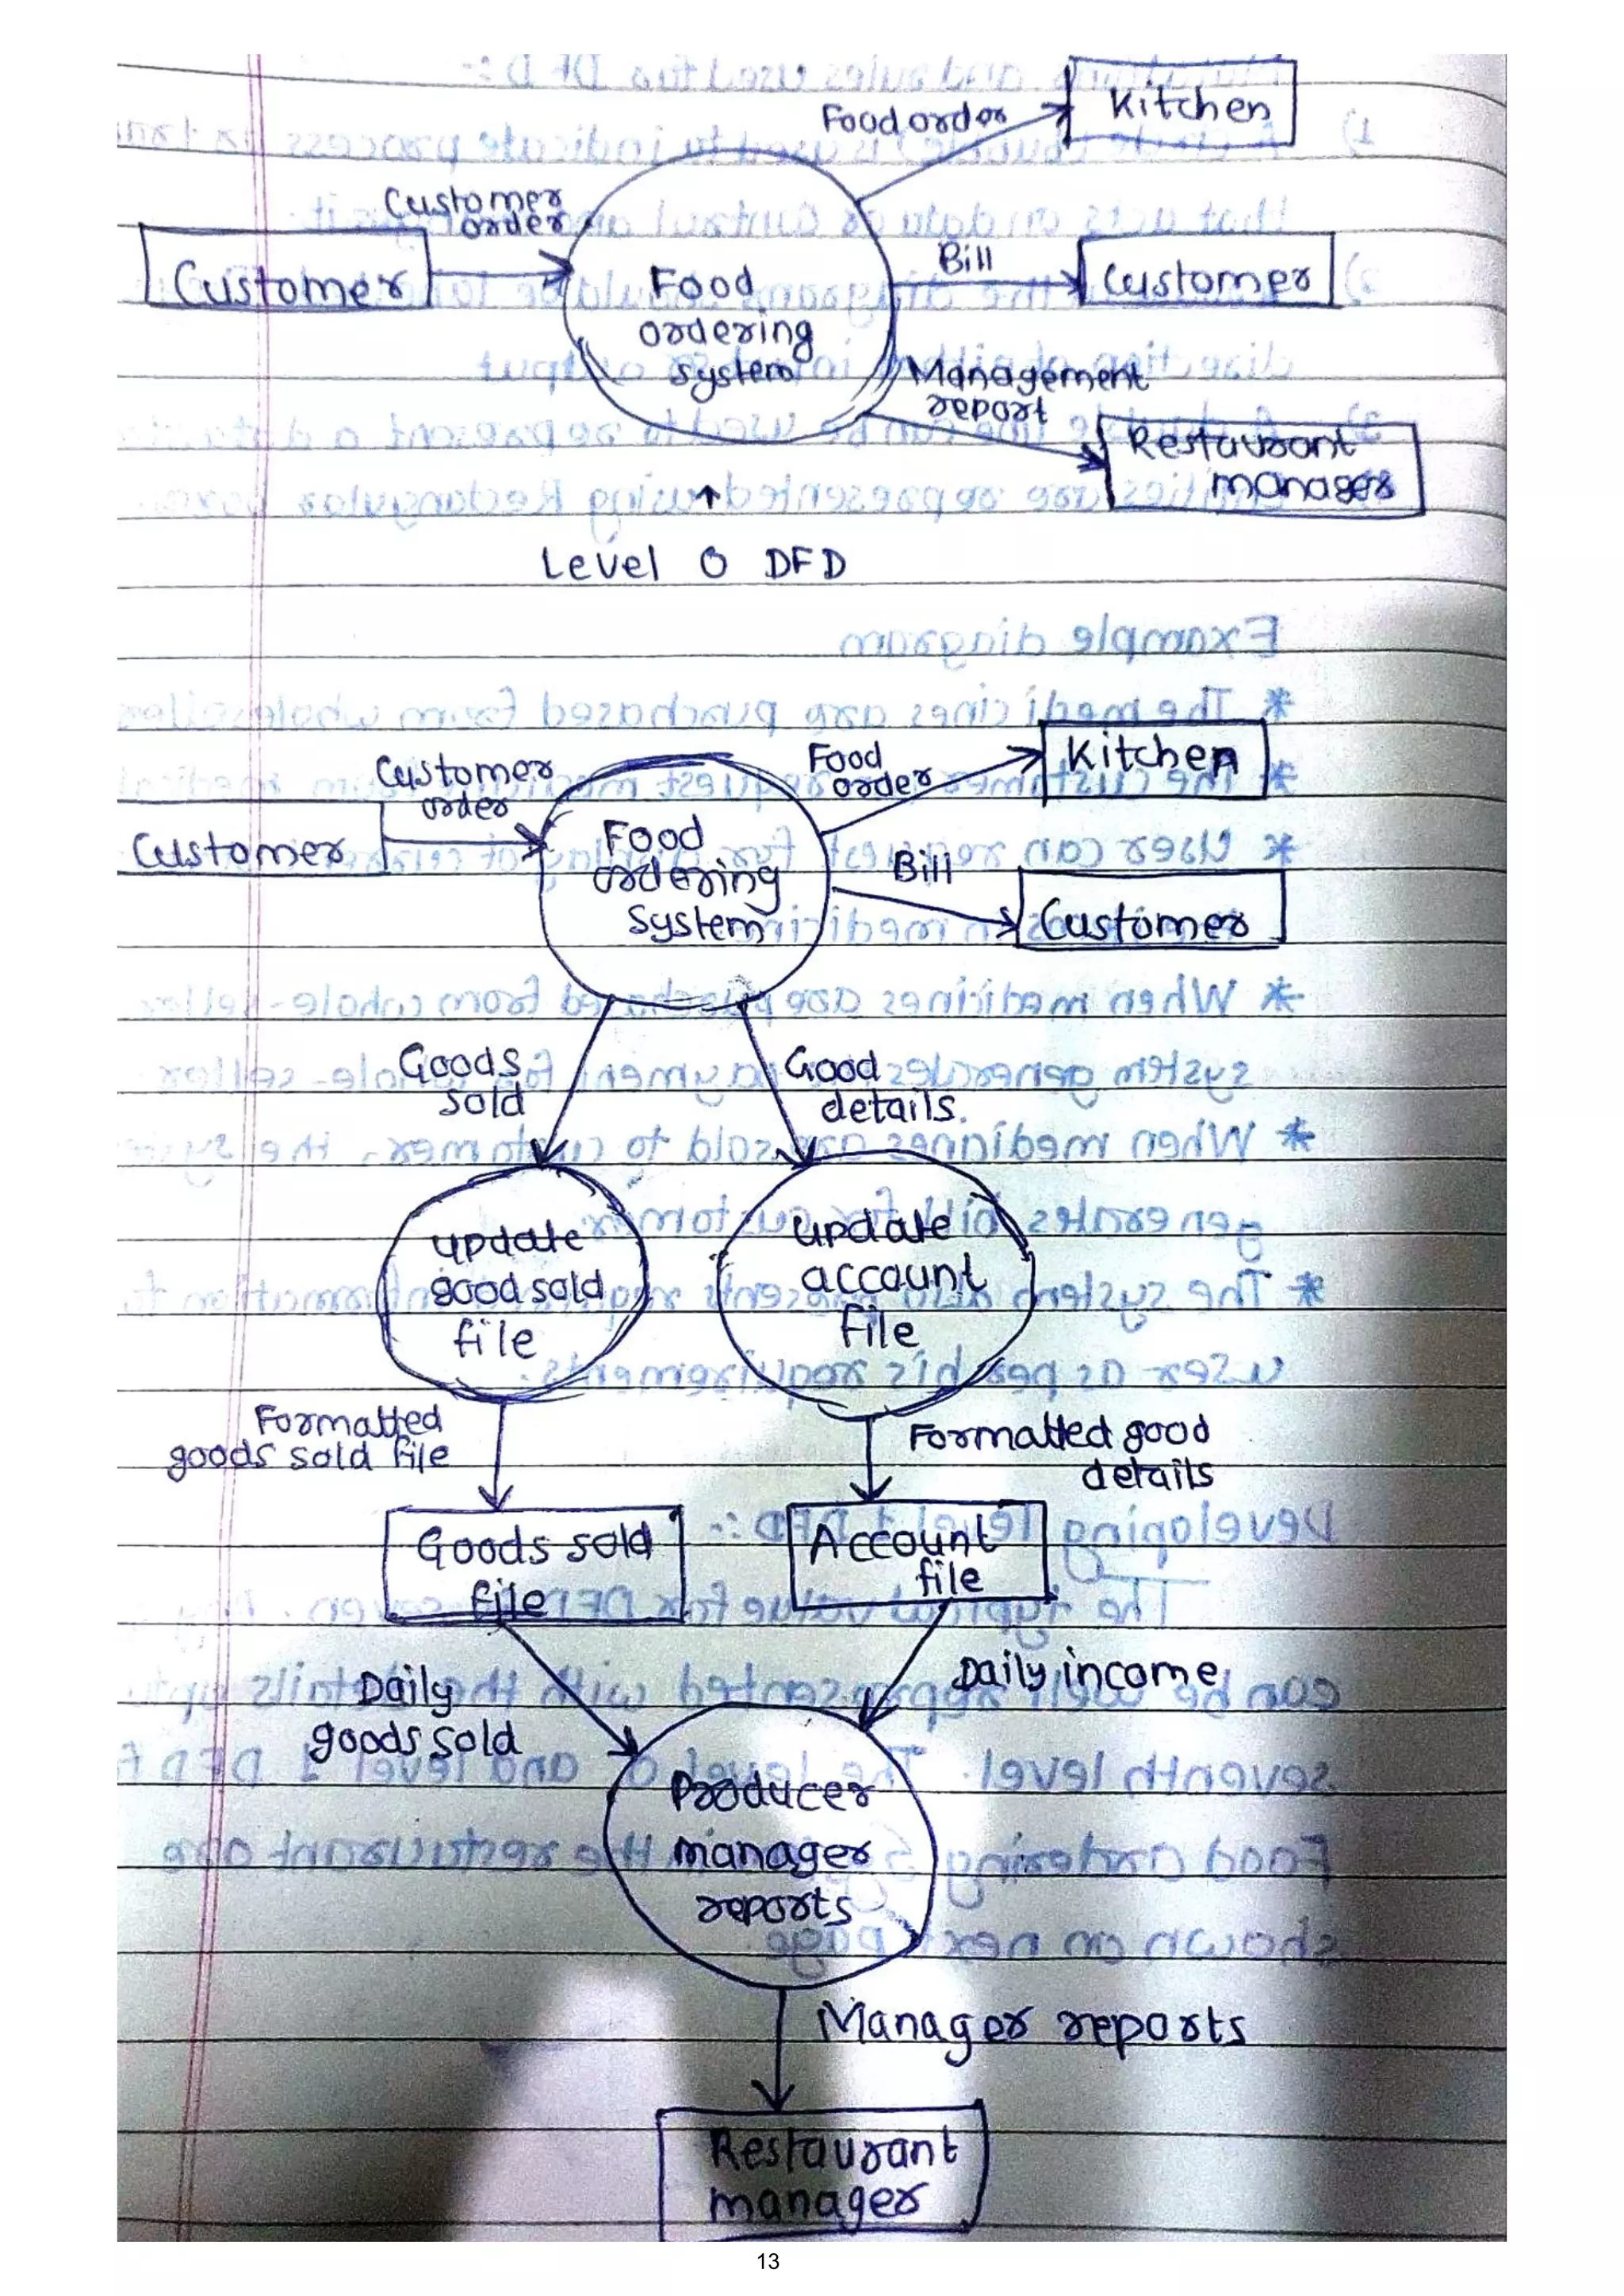 Food order
Kitchen
Customer
order
Customer
Food
ordering
system
Bill
Customer
Management
report
Restaurant
manager
Level 0 DFD
Customer
order
Customer
Food
ordering
system
Food
order
Kitchen
Bill
Customer
Goods
sold
Good
details.
update
good sold
file
update
account
file
Formatted
goods sold file
Formatted good
details
Goods sold
file
Account
file
Daily
goods sold
Daily income
Producer
manager
reports
Manager reports
Restaurant
manager
13